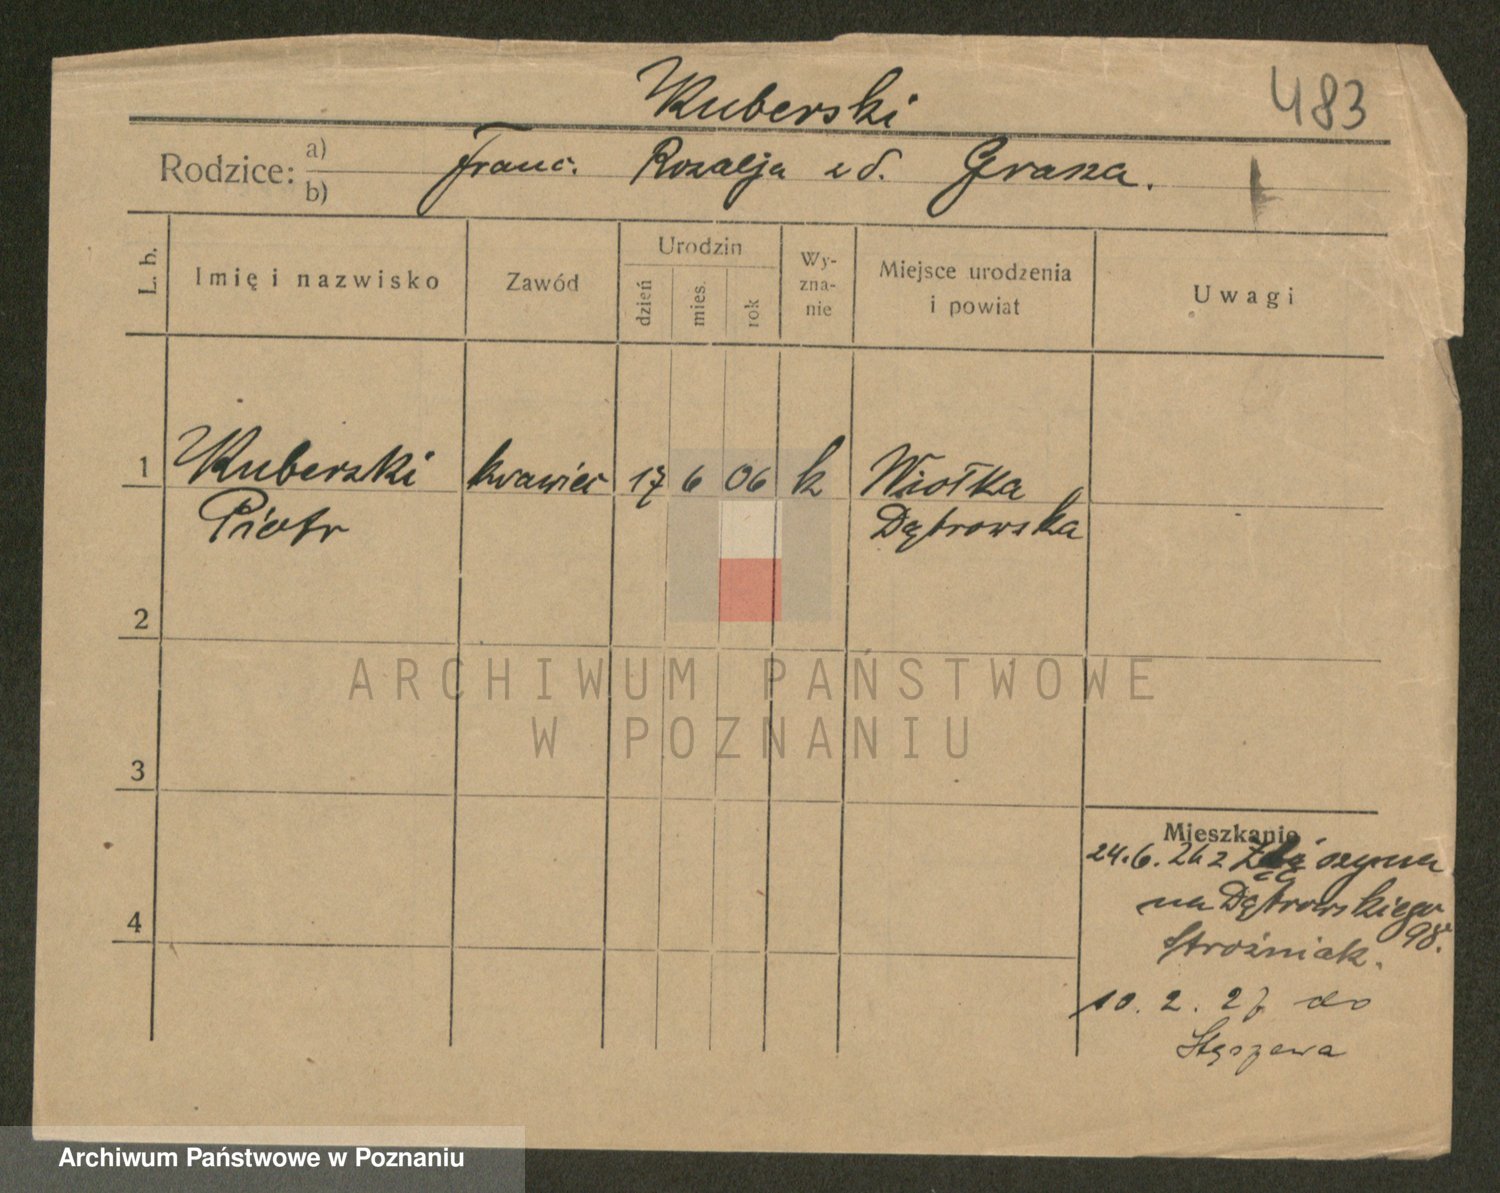 Kuberski
483
Rodzice: a) b) Franc. Rozalja z d. Grasza.
L. b.
Imię i nazwisko
Zawód
Urodzin
dzień
mies.
rok
Wy-
zna-
nie
Miejsce urodzenia
i powiat
Uwagi
1 Kuberski krawiec 17 6 06 k Wiołka
Piotr Dąbrowska
2
3
4
Mieszkanie
24.6.26 z
na Dąbrowskiego
98.
Stróżniak.
10. 2. 27 do
Stęszewa
ARCHIWUM PAŃSTWOWE
W POZNANIU
Archiwum Państwowe w Poznaniu